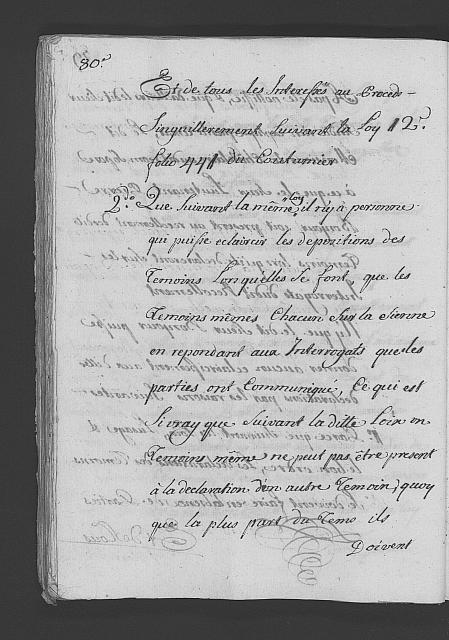 80.
Et de tous les Interessés au Procedé
Singuillerement Suivant la Loy 12.e
folio 441 du Coutumier
2.do Que Suivant la même loy il n'y à personne
qui puisse eclaircir les depositions des
Temoins lorsqu'elles Se font, que les
Temoins mêmes Chacun Sur la Sienne
en repondant aux Interrogats que les
parties ont Communiqué, Ce qui est
Si vray que Suivant la ditte Loix un
Temoins même ne peut pas être present
à la declaration d'un autre Temoin, quoy
que la plus part du Tems ils
Doivent